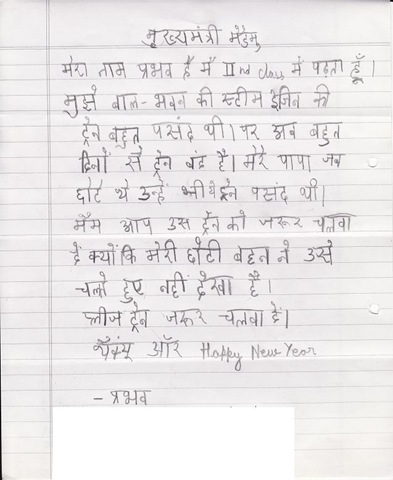 मुख्यमंत्री मेडम
मेरा नाम प्रभव है मैं IInd class में पढ़ता हूँ।
मुझे बाल-भवन की स्टीम इंजिन की
ट्रेन बहुत पसंद थी। पर अब बहुत
दिनों से ट्रेन बंद है। मेरे पापा जब
छोटे थे उन्हें भी ये ट्रेन पसंद थी।
मैम आप उस ट्रेन को जरूर चलवा
दें क्योंकि मेरी छोटी बहन ने उसे
चलते हुए नहीं देखा है।
प्लीज ट्रेन जरूर चलवा दें।
थैंक्यू और Happy New Year
- प्रभव